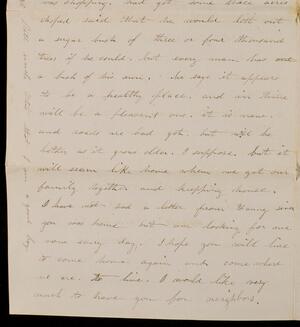 was chopping. had got some three acres
choped said that he would look out
a sugar bush of three or four thousand
trees if he could. but every man has one
a bush of his own. he says it appears
to be a healthy place. and in time
will be a pleasent one. it is new.
and roads are bad yet but will be
better as it grows older. I suppose. but it
will seem like home when we get our
family together and keepping house.
I have not had a letter from since
you was home but am looking for one
now every day. I hope you will live
to come home again and come where
we are to live. I would like very
much to have you for neighbors.